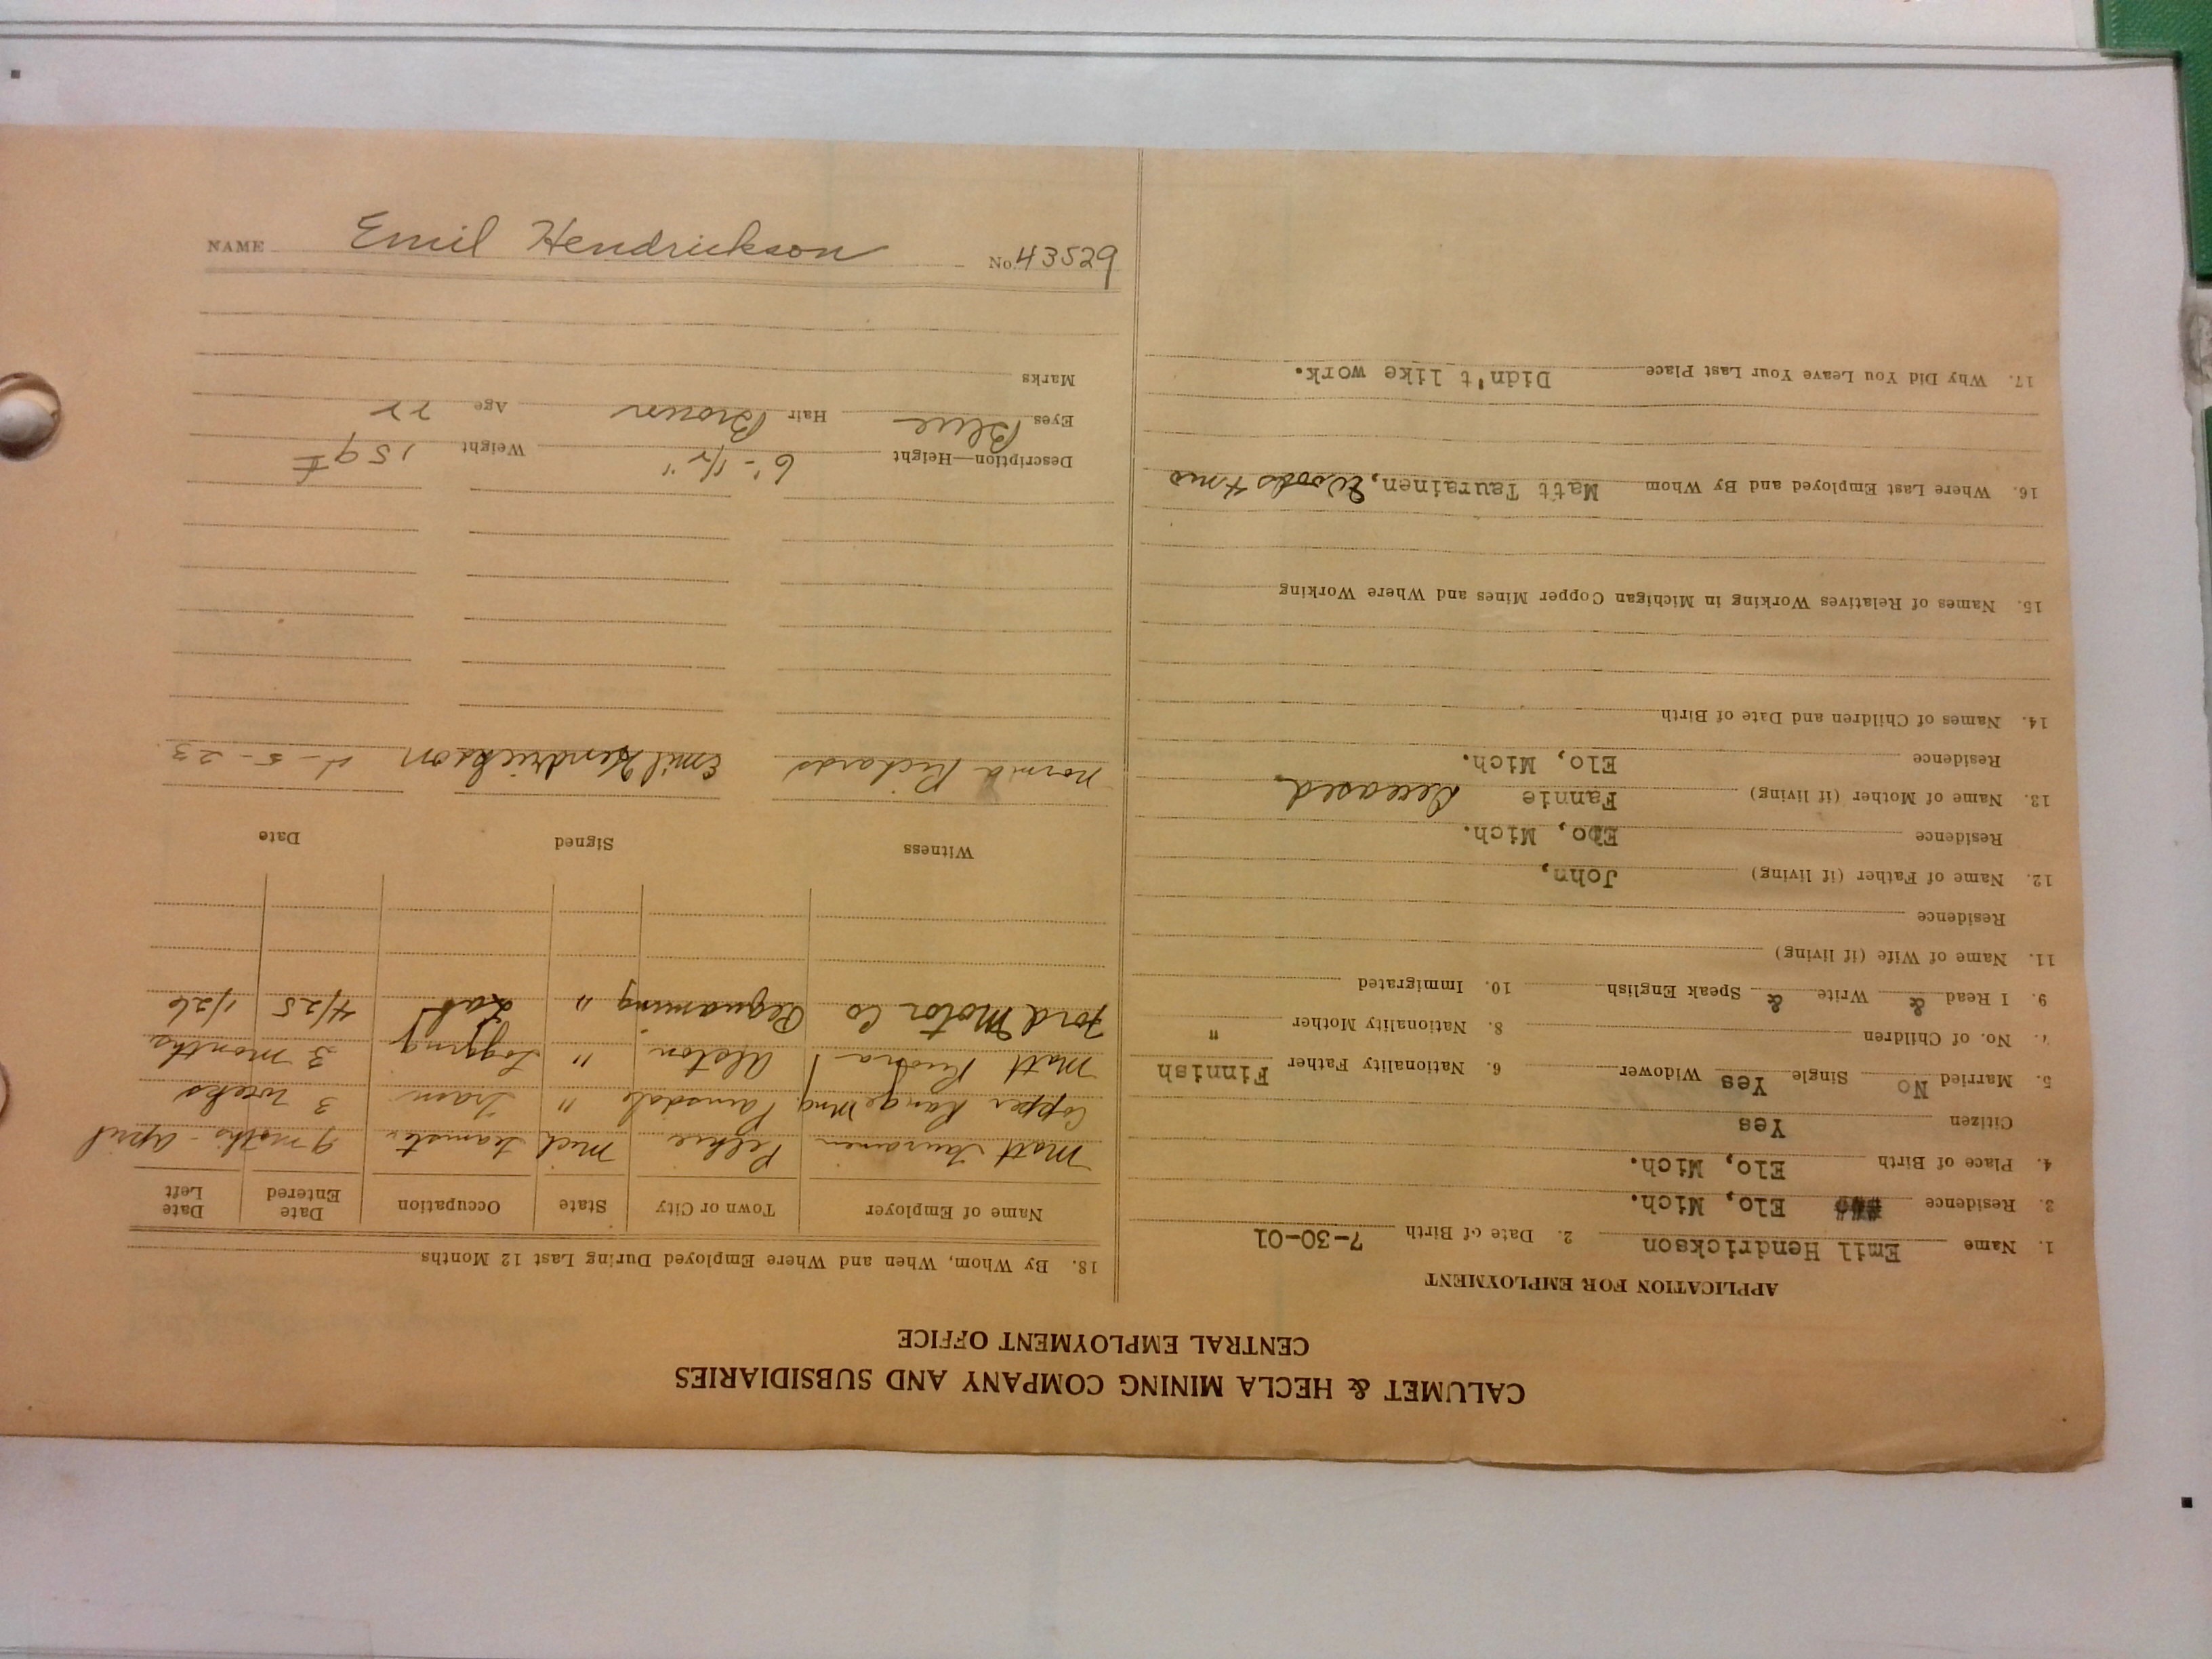 CALUMET & HECLA MINING COMPANY AND SUBSIDIARIES
CENTRAL EMPLOYMENT OFFICE
APPLICATION FOR EMPLOYMENT
1. Name Emil Hendrickson 2. Date of Birth 7-30-01
3. Residence Elo, Mich.
4. Place of Birth Elo, Mich.
Citizen Yes
5. Married No Single Yes Widower 6. Nationality Father Finnish
7. No. of Children 8. Nationality Mother "
9. I Read & Write & Speak English 10. Immigrated
11. Name of Wife (if living)
Residence
12. Name of Father (if living) John,
Residence Elo, Mich.
13. Name of Mother (if living) Fannie Deceased
Residence Elo, Mich.
14. Names of Children and Date of Birth
15. Names of Relatives Working in Michigan Copper Mines and Where Working
16. Where Last Employed and By Whom Matt Taurainen, Woods 4 mo
17. Why Did You Leave Your Last Place Didn't like work.
18. By Whom, When and Where Employed During Last 12 Months
Name of Employer Town or City State Occupation Date Entered Date Left
Matt Pelkie Mich Teamster 9 - April
Copper Range Mng Painesdale " Tram 3 weeks
Matt Alston " Logging 3 months
Ford Motor Co Pequaming " Lab 4/25 1/26
Witness Signed Date
Norma Richards Emil Hendrickson 5-23
Description—Height 6'-1/2" Weight 159
Eyes Blue Hair Brown Age 22
Marks
NAME Emil Hendrickson No. 43529